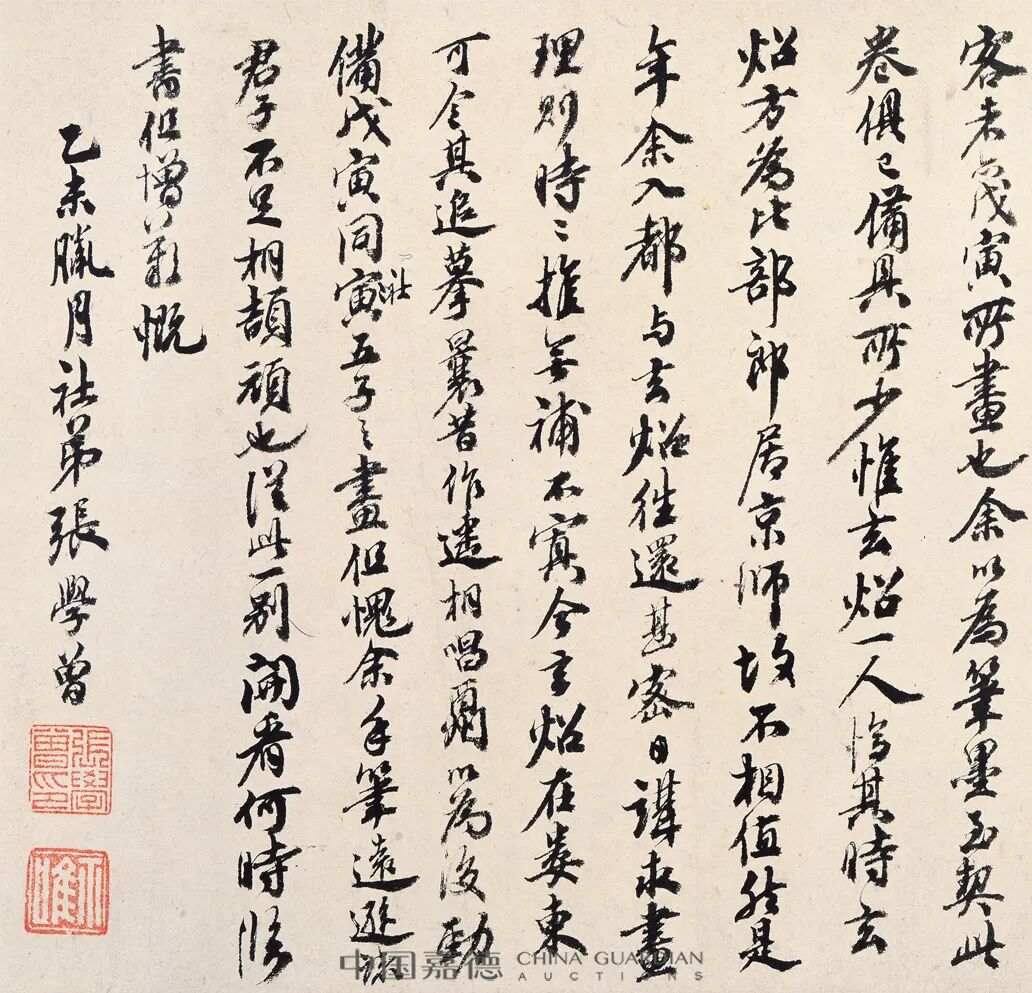 客未戊寅所畫也余以為筆墨至契此
卷俱已備具所少惟玄炤一人其時玄
炤方為比部郎居京師故不相值然是
年余入都與玄炤往還甚密日講求畫
理則時〻推補不寘今玄炤在婁東
可令其追摹曩昔作遞相唱酬以為後勁
備戊寅同社寅五子〻畫但愧余手筆遠遜諸
君子不足相頡頏也從此一別開看何時臨
書但增慨
乙未臘月社弟張學曾
張學曾印
爾唯
中国嘉德 CHINA GUARDIAN AUCTIONS